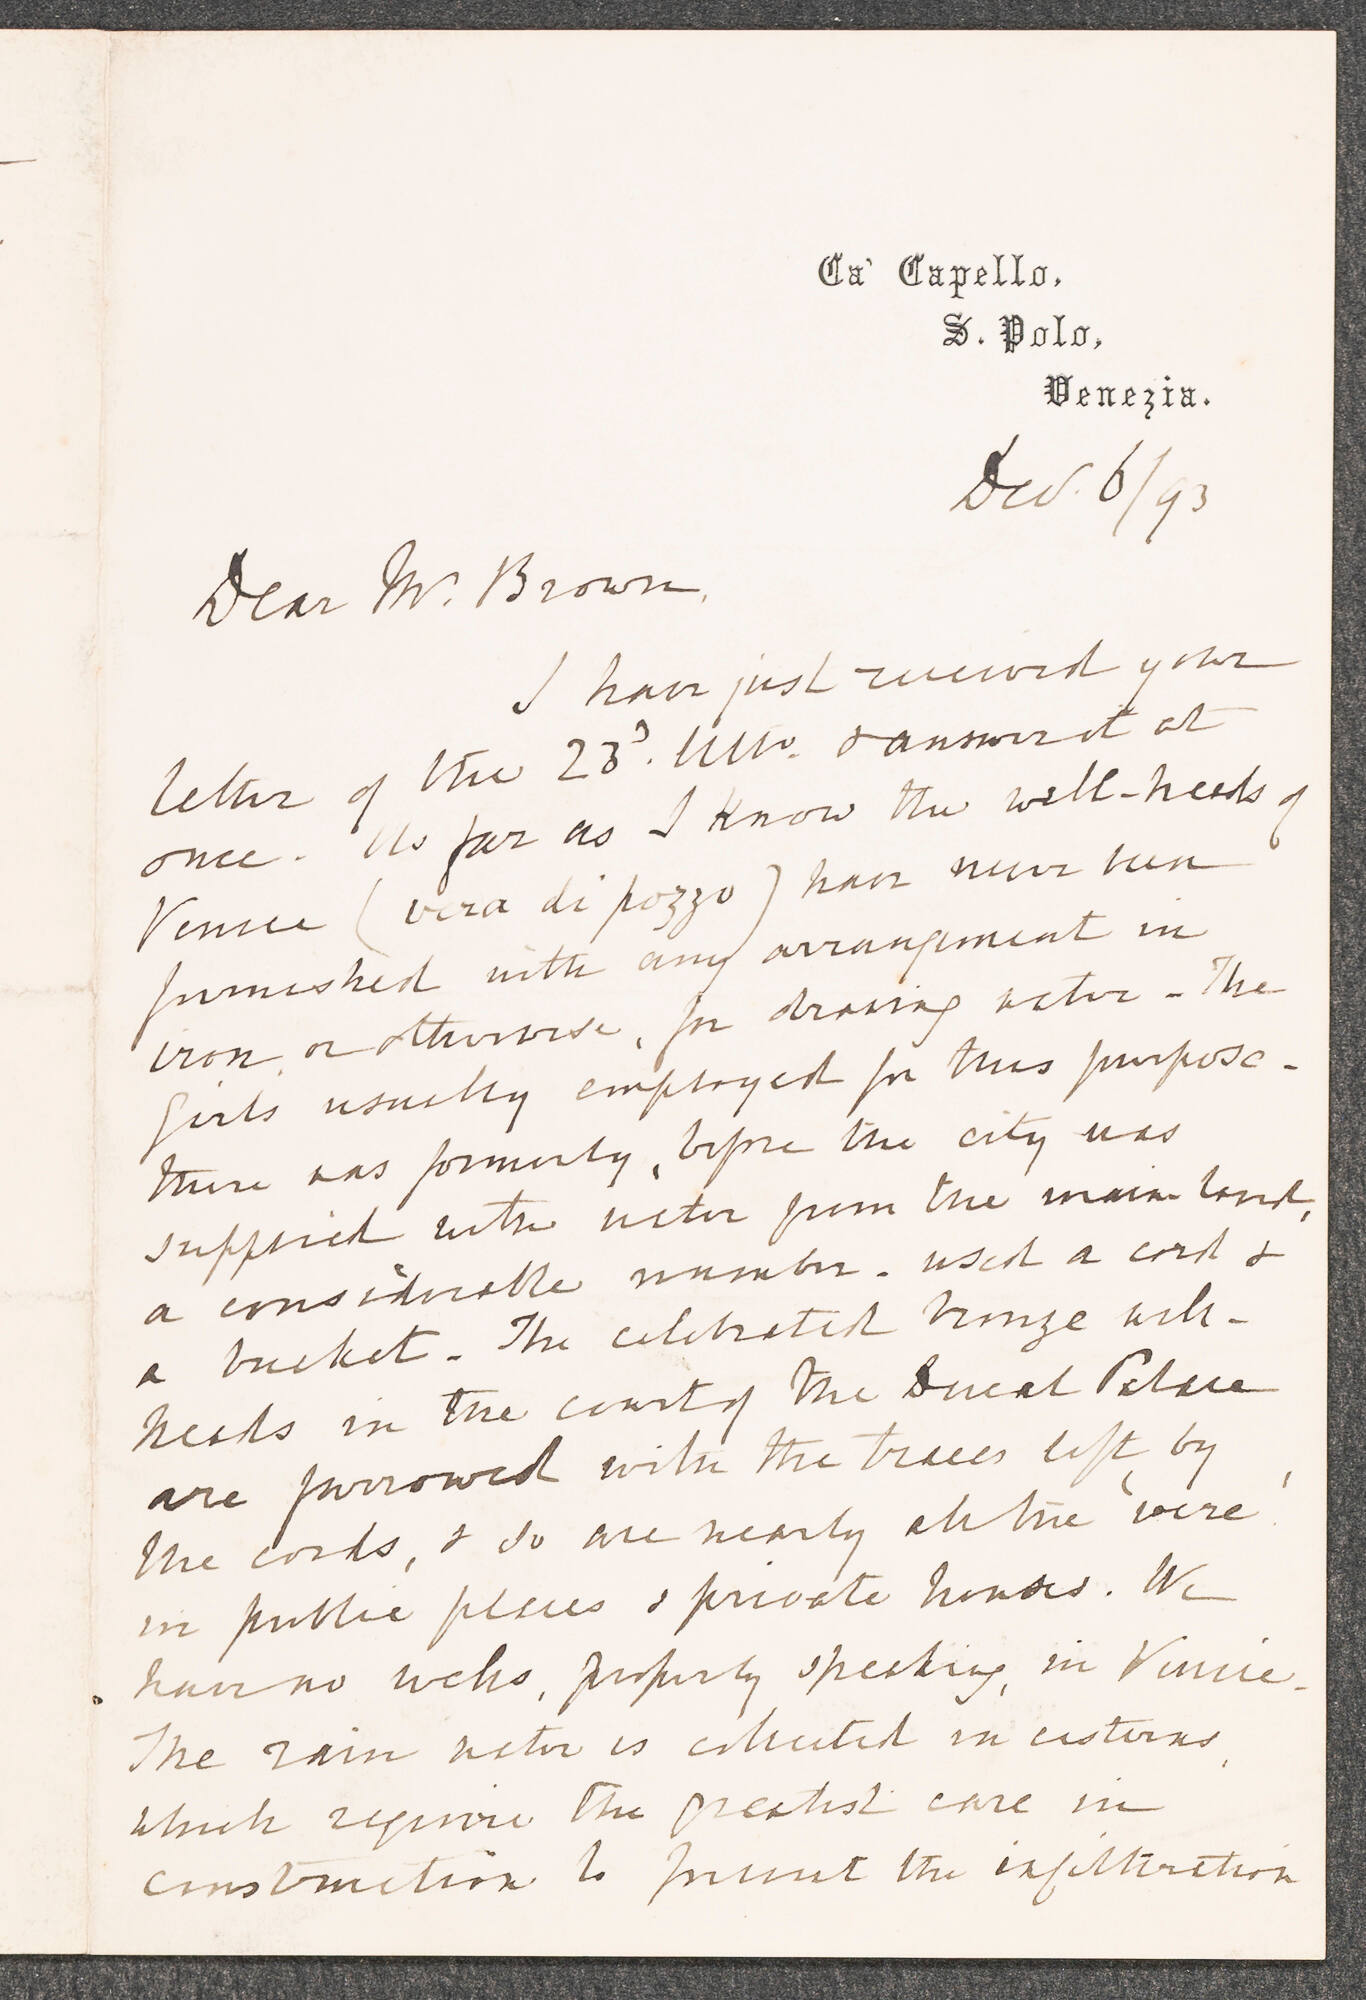 Ca' Capello,
S. Polo,
Venezia.
Dec. 6/93
Dear Mr. Brown,
I have just received your
letter of the 23d. Ulto. & answer it at
once. As far as I know the well-heads of
Venice (vera di pozzo) have never been
furnished with any arrangement in
iron, or otherwise, for drawing water - The
girls usually employed for this purpose -
there was formerly, before the city was
supplied with water from the main-land,
a considerable number - used a cord &
a bucket - The celebrated bronze well-
heads in the court of the Ducal Palace
are furrowed with the traces left by
the cords, & so are nearly all the 'vere'
in public places & private houses. We
have no wells, properly speaking, in Venice -
The rain water is collected in cisterns,
which require the greatest care in
construction to prevent the infiltration